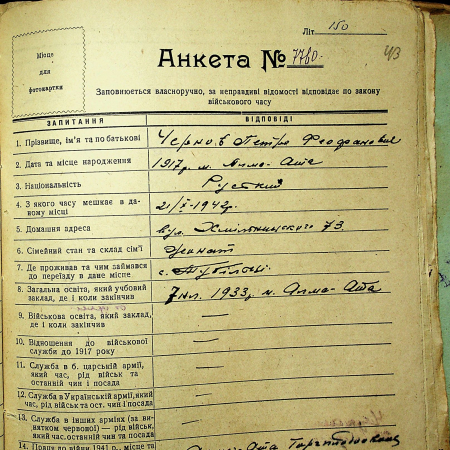 Літ 150
43
Місце
для
фотокартки
Анкета № 7780.
Заповнюється власноручно, за неправдиві відомості відповідає по закону
військового часу
ЗАПИТАННЯ ВІДПОВІДІ
1. Прізвище, ім'я та по батькові Чернов Петро Феофанович
2. Дата та місце народження 1917 р. м. Алма-Ата
3. Національність Руский
4. З якого часу мешкає в да-
ному місці 21/X-1942 р.
5. Домашня адреса вул. Хмільницького 73
6. Сімейний стан та склад сім'ї Женат
7. Де проживав та чим займався
до переїзду в дане місце с.
8. Загальна освіта, який учбовий
заклад, де і коли закінчив 7 кл. 1933 р. м. Алма-Ата
9. Військова освіта, який заклад,
де і коли закінчив —
10. Відношення до військової
служби до 1917 року —
11. Служба в б. царській армії,
який час, рід військ та
останній чин і посада —
12. Служба в Українській армії, який
час, рід військ та ост. чин і посада —
13. Служба в інших арміях (за ви-
нятком червоної) — рід військ,
який час, останній чин та посада —
14. Праця до війни 1941 р., місце та Ата